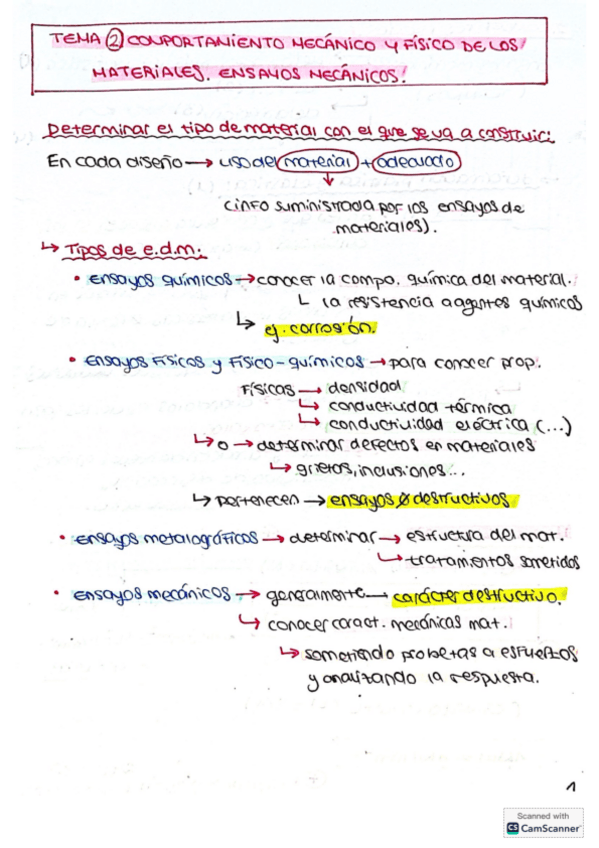 TEMA ② COMPORTAMIENTO MECÁNICO Y FÍSICO DE LOS
MATERIALES. ENSAYOS MECÁNICOS.
Determinar el tipo de material con el que se va a construir:
En cada diseño → uso del material + adecuado
↓
(info suministrada por los ensayos de
materiales).
↳ Tipos de e.d.m.:
• ensayos químicos → conocer la compo. química del material.
↳ la resistencia a agentes químicos
↳ ej. corrosión.
• ensayos Físicos y Físico-químicos → para conocer prop.
Físicas → densidad
↳ conductividad térmica
↳ conductividad eléctrica (...)
↳ o → determinar defectos en materiales
↳ grietas, inclusiones...
↳ pertenecen → ensayos Ø destructivos
• ensayos metalográficos → determinar → estructura del mat.
↳ tratamientos sometidos
• ensayos mecánicos → generalmente → carácter destructivo.
↳ conocer caract. mecánicas mat.
↳ sometiendo probetas a esfuerzos
y analizando la respuesta.
1
Scanned with
CS CamScanner